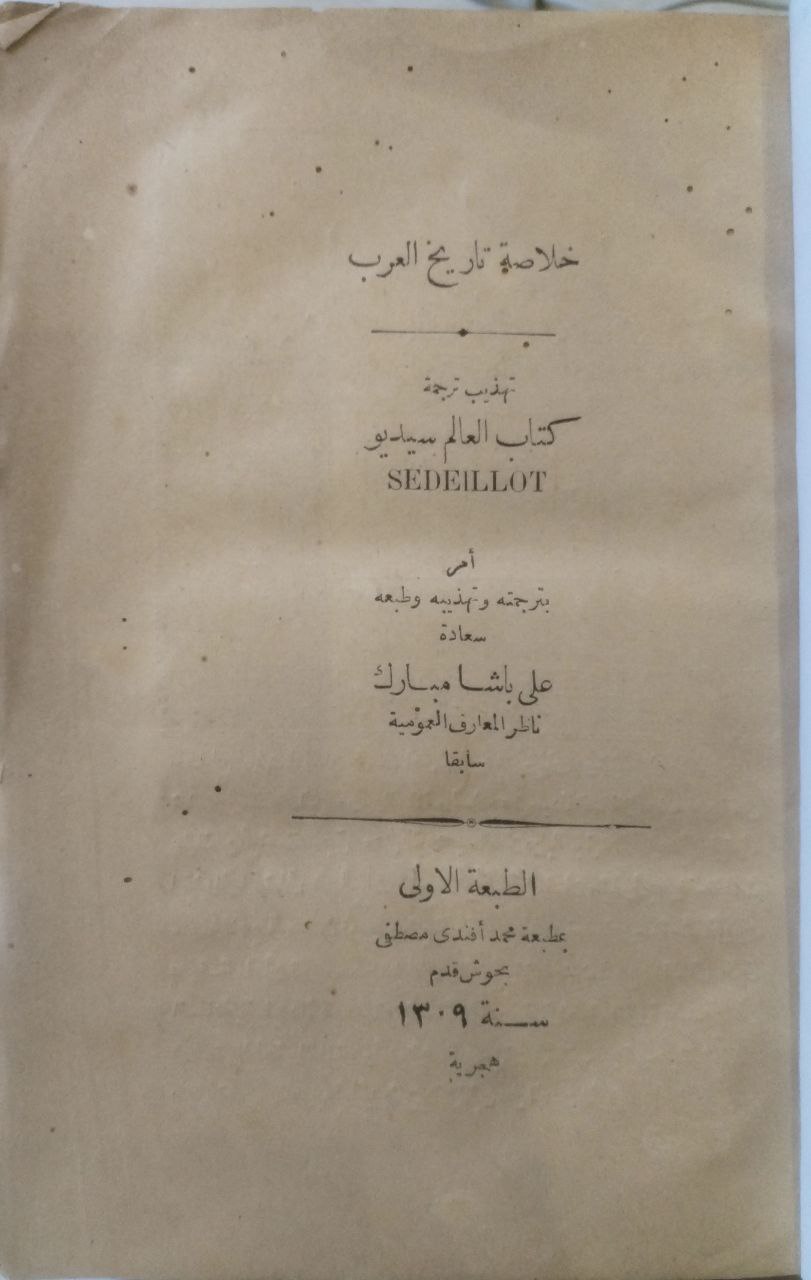 خلاصة تاريخ العرب
تهذيب ترجمة
كتاب العالم سيديو
SEDEILLOT
أمر
بترجمته وتهذيبه وطبعه
سعادة
على باشا مبارك
ناظر المعارف العمومية
سابقا
الطبعة الاولى
بمطبعة محمد أفندى مصطفى
بحوش قدم
سنة ١٣٠٩
هجرية